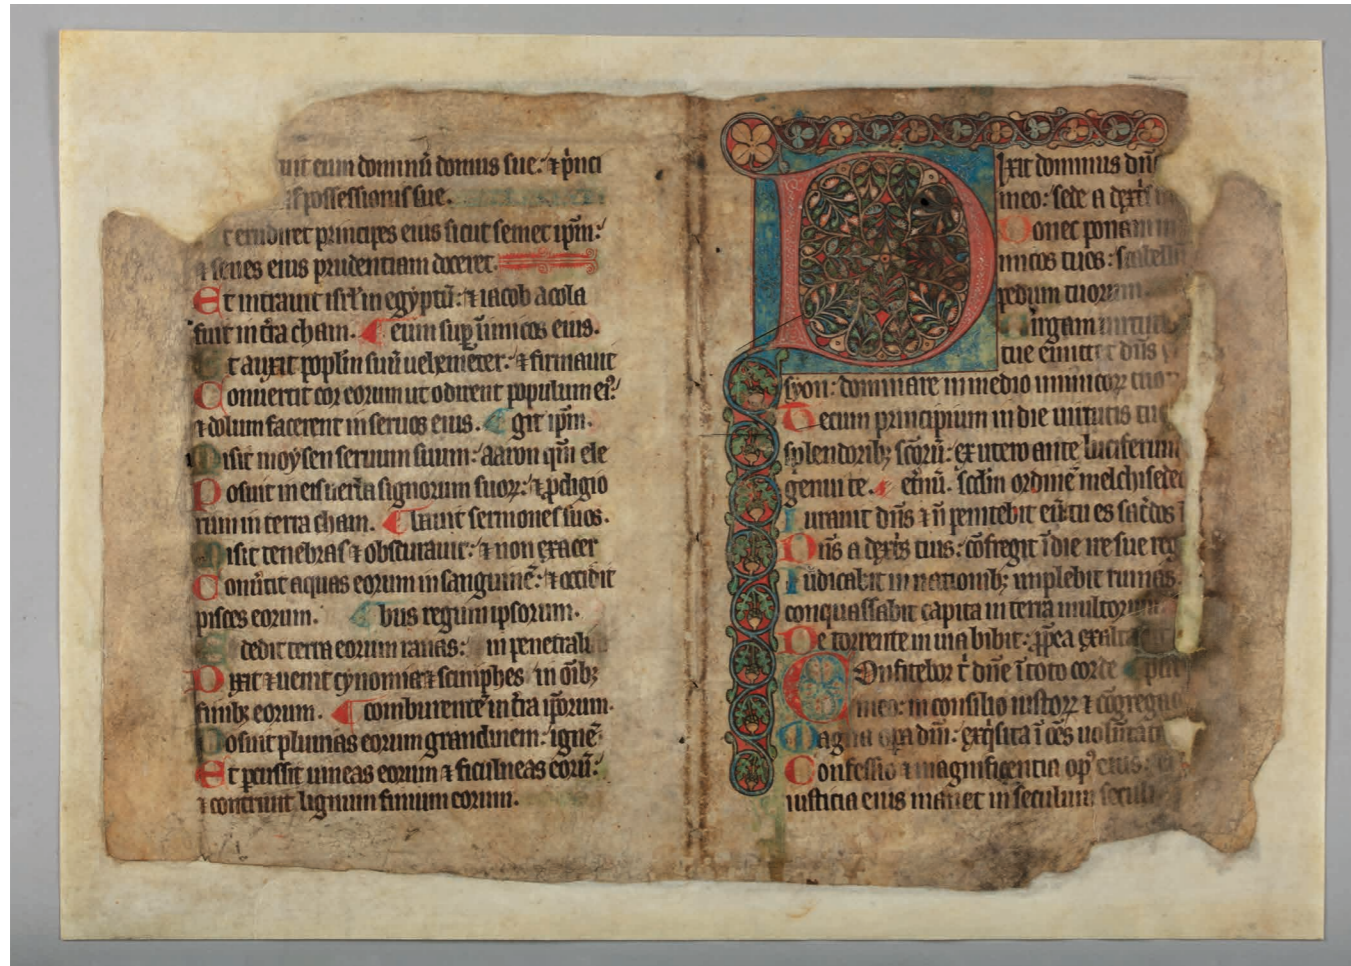 uit eum dominũ domus sue: ⁊ p̃nci
possessionis sue.
t erudiret principes eius sicut semet ip̃m:
⁊ senes eius prudentiam doceret.
Et intrauit isrl̃ in egyptũ: ⁊ iacob acola
fuit in t̃ra cham. eum sup̱ inimicos eius.
Et auxit popl̃m suũ uehemẽter: ⁊ firmauit
Conuertit cor eorum ut odirent populum eiꝰ:
⁊ dolum facerent in seruos eius. git ip̃m.
Misit moysen seruum suum: aaron quẽ ele
Posuit in eis uerba signorum suoꝝ: ⁊ ꝓdigio
rum in terra cham. bauit sermones suos.
Misit tenebras ⁊ obscurauit: ⁊ non exacer
Conũtit aquas eorum in sanguinẽ: ⁊ occidit
pisces eorum. bus regum ipsorum.
Edidit terra eorum ranas: in penetrali
Dixit ⁊ uenit cynomia ⁊ sciniphes in oĩbꝫ
finibꝫ eorum. comburentẽ in t̃ra ip̃orum.
Posuit pluuias eorum grandinem: ignẽ
Et percussit uineas eorum ⁊ ficulneas eorũ:
⁊ contriuit lignum finium eorum.
Dixit dominus dñs
meo: sede a dext̃s
Donec ponam in
imicos tuos: scabellũ
pedum tuorum.
Uirgam uirtut
tue emittet dñs
syon: dominare in medio inimicoꝝ tuo
Tecum principium in die uirtutis tue
splendoribꝫ sc̃orũ: ex utero ante luciferum
genui te. et̃nũ. scd̃m ordinẽ melchisedec
Iurauit dñs ⁊ ñ penitebit eũ: tu es sac̃dos
Dñs a dext̃s tuis: cõfregit ĩ die ire sue reg
Iudicabit in nationibꝫ implebit ruinas
conquassabit capita in terra multorum
De torrente in uia bibit: ꝓpt̃ea exalta
Confitebor t̃ dñe ĩ toto corde
meo: in consilio iustoꝝ ⁊ cõgregat
Magna opa dñi: exq̃sita ĩ oẽs uolũtat
Confessio ⁊ magnificentia opꝰ eius:
iusticia eius manet in seculum seculi